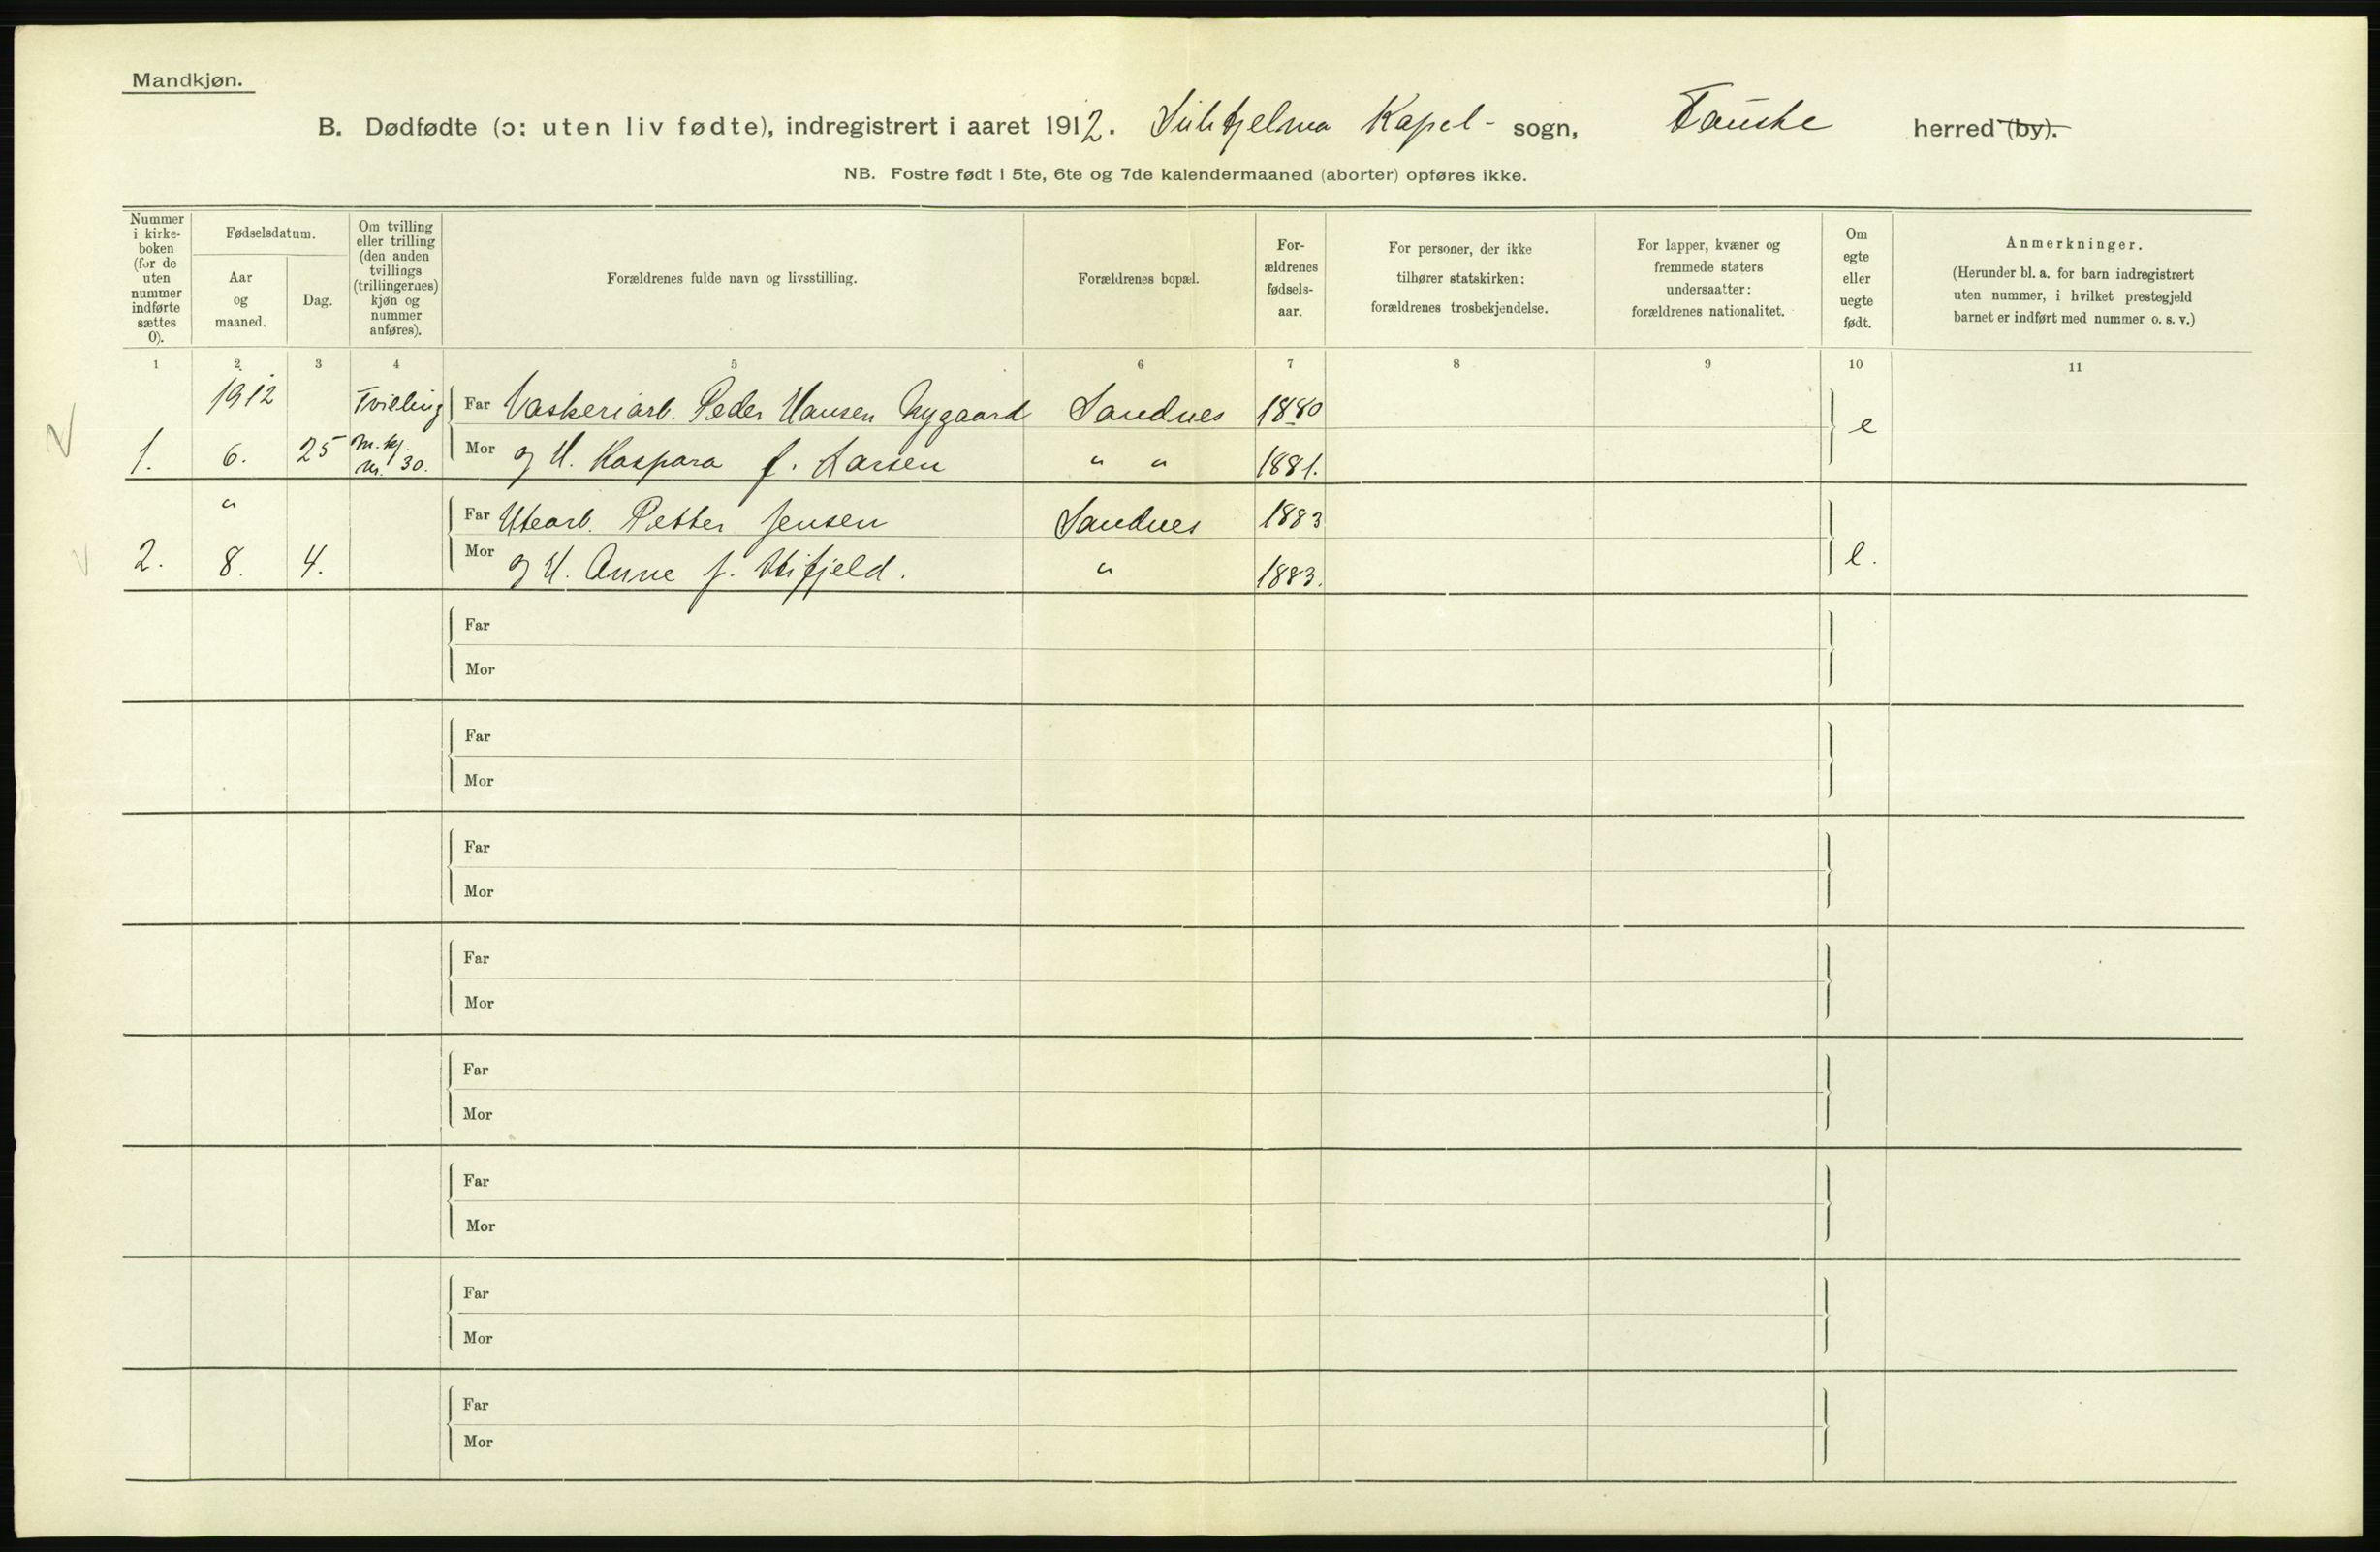 Mandkjøn.
B. Dødfødte (ɔ: uten liv fødte), indregistrert i aaret 1912. Sulitjelma Kapel- sogn, Fauske herred (by).
NB. Fostre født i 5te, 6te og 7de kalendermaaned (aborter) opføres ikke.
Nummer i kirke-boken (for de uten nummer indførte sættes 0).
Fødselsdatum.
Aar og maaned.
Dag.
Om tvilling eller trilling (den anden tvillings (trillingernes) kjøn og nummer anføres).
Forældrenes fulde navn og livsstilling.
Forældrenes bopæl.
For-ældrenes fødsels-aar.
For personer, der ikke tilhører statskirken: forældrenes trosbekjendelse.
For lapper, kvæner og fremmede staters undersaatter: forældrenes nationalitet.
Om egte eller uegte født.
Anmerkninger.
(Herunder bl. a. for barn indregistrert uten nummer, i hvilket prestegjeld barnet er indført med nummer o. s. v.)
1 2 3 4 5 6 7 8 9 10 11
1912 Tvilling Far Vaskeriarb. Peder Hansen Nygaard Sandnes 1880 e
1. 6. 25 m.kj. nr. 30. Mor og H. Kaspara f. Larsen " " 1881.
" Far Utearb. Petter Jensen Sandnes 1883
2. 8. 4. Mor og H. Anne f. fjeld. " 1883. e.
Far
Mor
Far
Mor
Far
Mor
Far
Mor
Far
Mor
Far
Mor
Far
Mor
Far
Mor